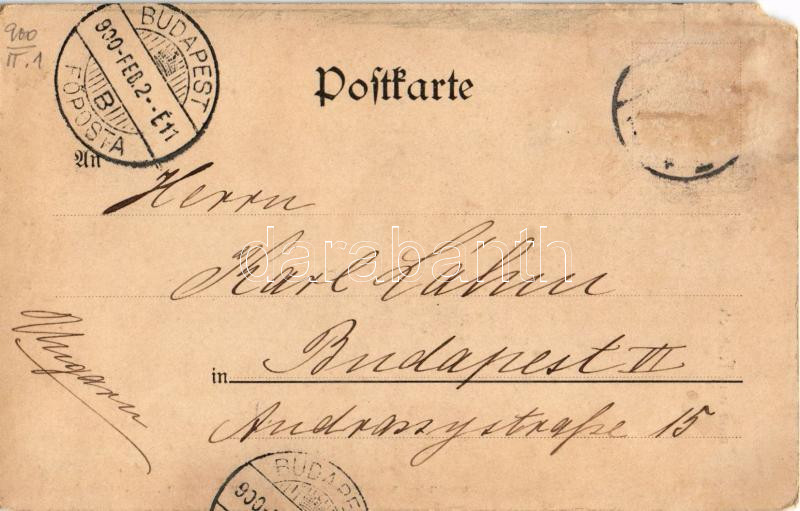 900
II.1
BUDAPEST
900-FEB.2--É11
B
FŐPOSTA
Postkarte
An
Herrn
darabanth
Karl
Ungarn
in Budapest VI
Andrassystraße 15
BUDAPE
900-